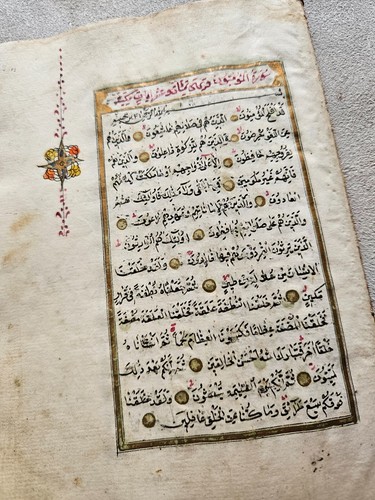 سورة المؤمنون
بسم الله الرحمن الرحيم
قَدْ اَفْلَحَ الْمُؤْمِنُونَ اَلَّذِينَ هُمْ فِي صَلَاتِهِمْ خَاشِعُونَ وَالَّذِينَ هُمْ
عَنِ اللَّغْوِ مُعْرِضُونَ وَالَّذِينَ هُمْ لِلزَّكٰوةِ فَاعِلُونَ وَالَّذِينَ هُمْ
لِفُرُوجِهِمْ حَافِظُونَ اِلَّا عَلٰى اَزْوَاجِهِمْ اَوْ مَا مَلَكَتْ اَيْمَانُهُمْ
فَاِنَّهُمْ غَيْرُ مَلُومِينَ فَمَنِ ابْتَغٰى وَرَاءَ ذٰلِكَ فَاُولٰئِكَ هُمُ
الْعَادُونَ وَالَّذِينَ هُمْ لِاَمَانَاتِهِمْ وَعَهْدِهِمْ رَاعُونَ
وَالَّذِينَ هُمْ عَلٰى صَلَوَاتِهِمْ يُحَافِظُونَ اُولٰئِكَ هُمُ الْوَارِثُونَ
اَلَّذِينَ يَرِثُونَ الْفِرْدَوْسَ هُمْ فِيهَا خَالِدُونَ وَلَقَدْ خَلَقْنَا
الْاِنْسَانَ مِنْ سُلَالَةٍ مِنْ طِينٍ ثُمَّ جَعَلْنَاهُ نُطْفَةً فِي قَرَارٍ
مَكِينٍ ثُمَّ خَلَقْنَا النُّطْفَةَ عَلَقَةً فَخَلَقْنَا الْعَلَقَةَ مُضْغَةً
فَخَلَقْنَا الْمُضْغَةَ عِظَامًا فَكَسَوْنَا الْعِظَامَ لَحْمًا ثُمَّ اَنْشَاْنَاهُ
خَلْقًا اٰخَرَ فَتَبَارَكَ اللّٰهُ اَحْسَنُ الْخَالِقِينَ ثُمَّ اِنَّكُمْ بَعْدَ ذٰلِكَ
لَمَيِّتُونَ ثُمَّ اِنَّكُمْ يَوْمَ الْقِيٰمَةِ تُبْعَثُونَ وَلَقَدْ خَلَقْنَا
فَوْقَكُمْ سَبْعَ طَرَائِقَ وَمَا كُنَّا عَنِ الْخَلْقِ غَافِلِينَ